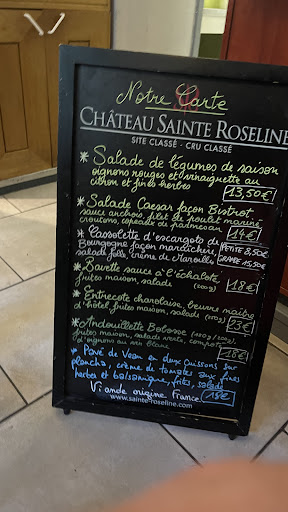 Notre Carte
CHÂTEAU SAINTE ROSELINE
SITE CLASSÉ - CRU CLASSÉ
* Salade de légumes de saison
oignons rouges et vinaigrette au
citron et fines herbes 13,50€
* Salade Caesar façon Bistrot
sauce anchois, filet de poulet mariné
croutons, copeaux de parmesan 14€
* Cassolette d'escargots de
Bourgogne façon maraichère PETITE 8,50€
salade folle, crème de GRANDE 15,50€
* Bavette sauce à l'échalote
frites maison, salade (200g) 18€
* Entrecote charolaise, beurre maître
d'hôtel, frites maison, salade 23€
* Andouillette
frites maison, salade verte, compotée
d'oignons au vin blanc 18€
* Pavé de Veau en deux cuissons sur
plancha, crème de tomates aux fines
herbes et balsamique, frites, salade
Viande origine France 18€
www.sainte-roseline.com